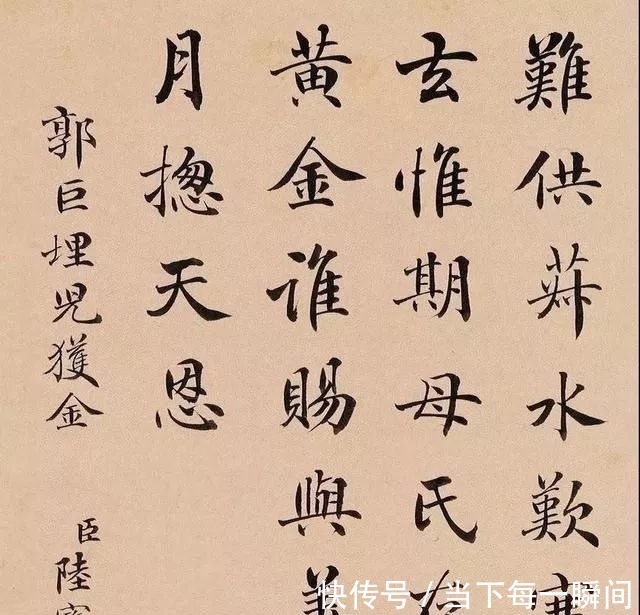 難供菽水歎
玄惟期母氏
黄金誰賜與
月揔天恩
郭巨埋兒獲金
臣陸
快传号 / 当下每一瞬间